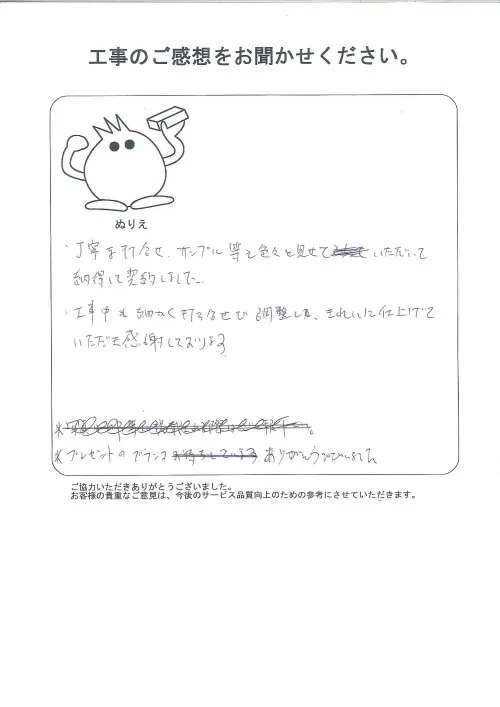 工事のご感想をお聞かせください。
ぬりえ
・丁寧な打合せ、サンプル等も色々と見せて いただいて
納得して契約しました。
・工事中も細かく打ち合せで調整しを、きれいに仕上げて
いただき感謝しております
※
※プレゼントのブランコ ありがとうございました
ご協力いただきありがとうございました。
お客様の貴重なご意見は、今後のサービス品質向上のための参考にさせていただきます。